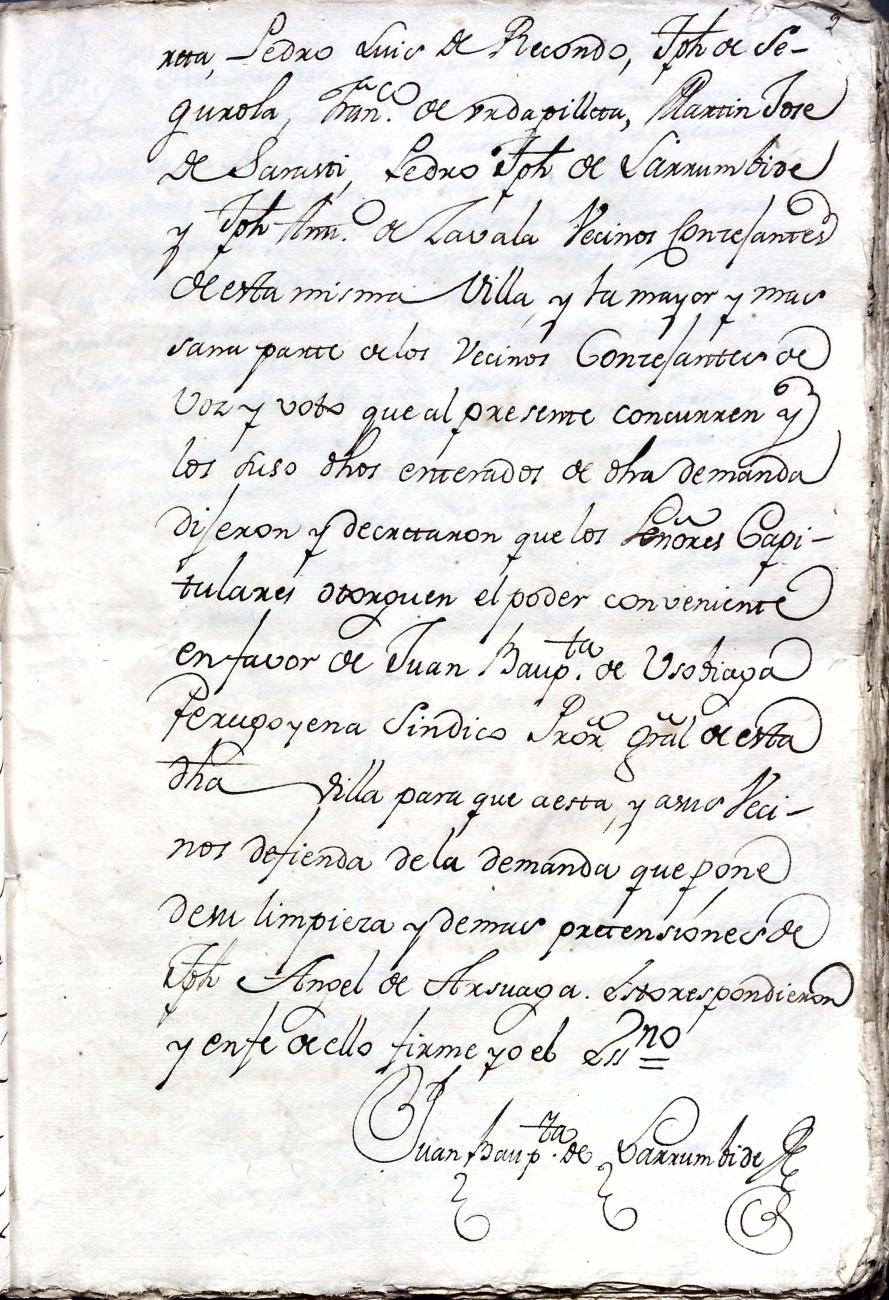 2
reta, Pedro Luis de Recondo, Jph de Se-
gurola, Fran.co de Vrdapilleta, Martin Jose
de Sarasti, Pedro Jph de Larrumbide
y Jph Antt.o de Zavala Vecinos Conzejantes
de esta misma Villa, y la mayor y mas
sana parte de los Vecinos Conzejantes de
Voz y voto que al presente concurren y
los suso dhos enterados de dha demanda
dijeron y decretaron que los Señores Capi-
tulares otorguen el poder conveniente
en favor de Juan Baup.ta de Vsobiaga
Perugoyena Sindico Pror gral de esta
dha Villa para que aesta, y asus Veci-
nos defienda dela demanda que pone
desu limpieza y demas pretensiones de
Jph Angel de Arsuaga. Esto respondieron
y enfe de ello firme yo el Ess.no
Juan Baup.ta de Larrumbide